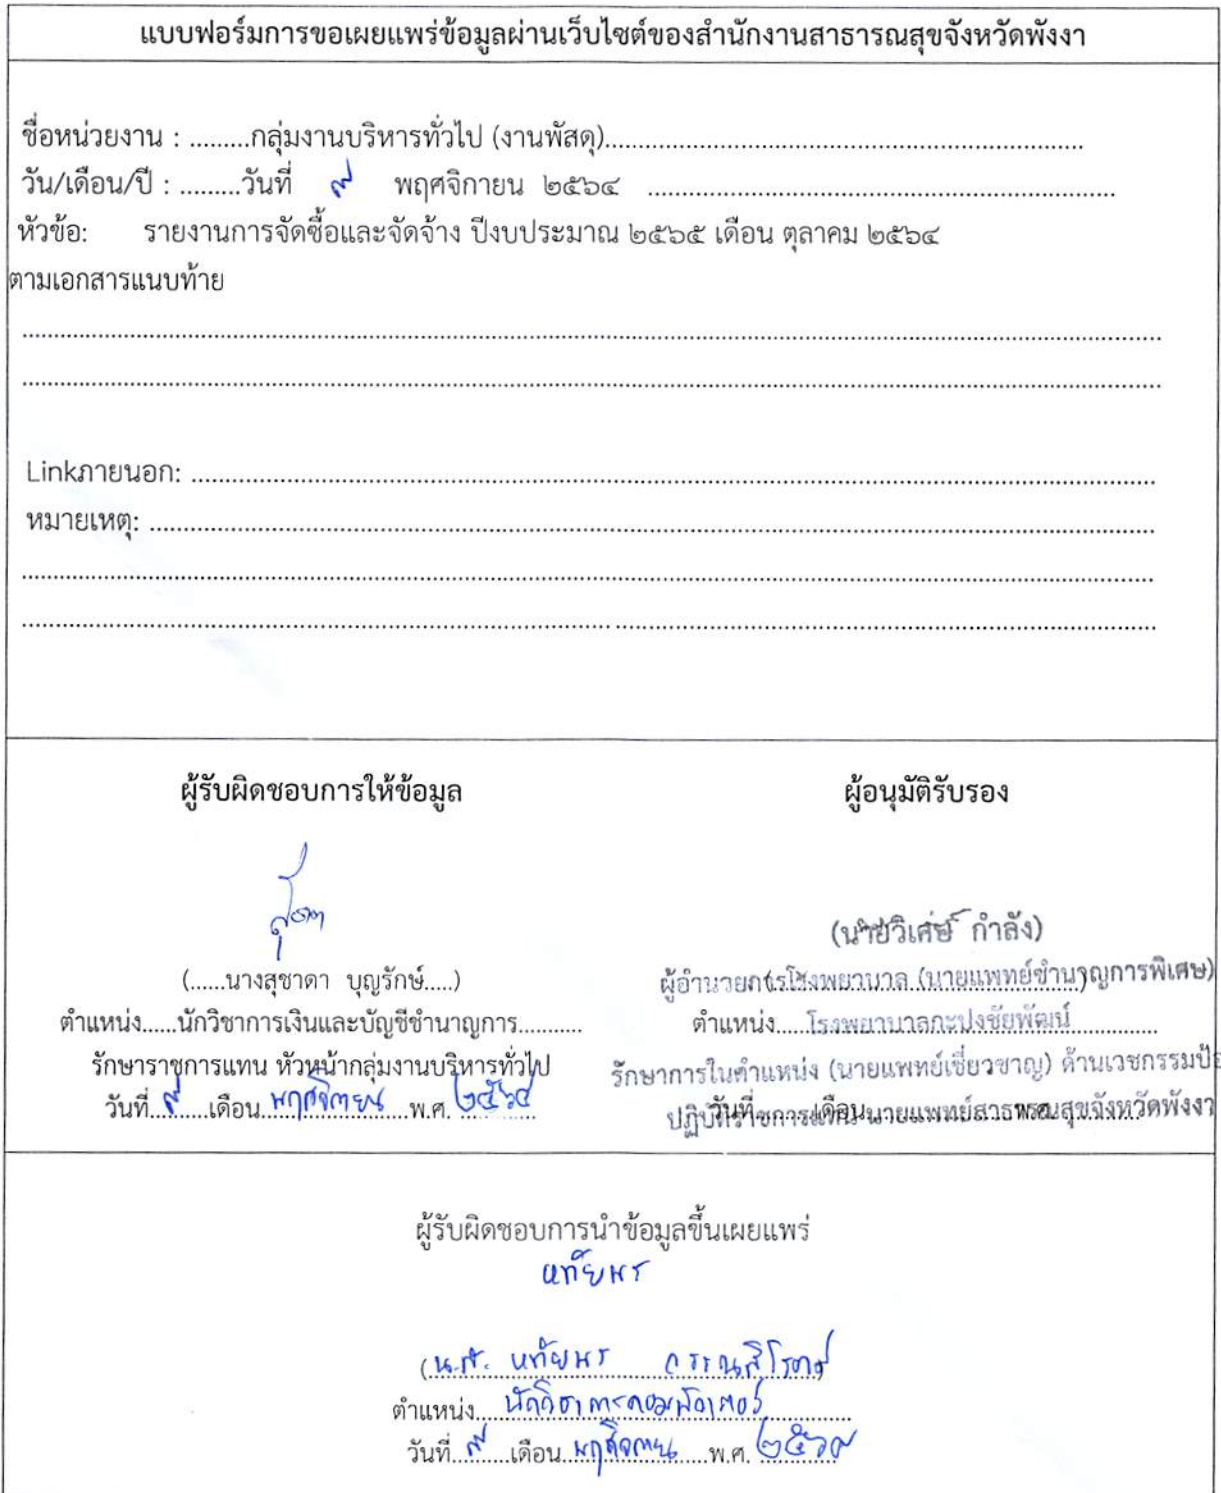 แบบฟอร์มการขอเผยแพร่ข้อมูลผ่านเว็บไซต์ของสำนักงานสาธารณสุขจังหวัดพังงา
ชื่อหน่วยงาน : .........กลุ่มงานบริหารทั่วไป (งานพัสดุ)...............
วัน/เดือน/ปี : .........วันที่ ๙ พฤศจิกายน ๒๕๖๔ ...............
หัวข้อ: รายงานการจัดซื้อและจัดจ้าง ปีงบประมาณ ๒๕๖๕ เดือน ตุลาคม ๒๕๖๔
ตามเอกสารแนบท้าย
Linkภายนอก: ...............
หมายเหตุ: ...............
ผู้รับผิดชอบการให้ข้อมูล
สุชาดา
(......นางสุชาดา บุญรักษ์.....)
ตำแหน่ง......นักวิชาการเงินและบัญชีชำนาญการ...........
รักษาราชการแทน หัวหน้ากลุ่มงานบริหารทั่วไป
วันที่..๙......เดือน..พฤศจิกายน....พ.ศ. ๒๕๖๔
ผู้อนุมัติรับรอง
(นายวิเศษ กำลัง)
ผู้อำนวยการโรงพยาบาล (นายแพทย์ชำนาญการพิเศษ)
ตำแหน่ง.....โรงพยาบาลกะปงชัยพัฒน์...............
รักษาการในตำแหน่ง (นายแพทย์เชี่ยวชาญ) ด้านเวชกรรมป้อ
ปฏิบัติราชการแทน นายแพทย์สาธารณสุขจังหวัดพังงา
วันที่............เดือน...............พ.ศ................
ผู้รับผิดชอบการนำข้อมูลขึ้นเผยแพร่
หทัยพร
(น.ส. หทัยพร
ตำแหน่ง...นักวิชาการคอมพิวเตอร์............
วันที่..๙......เดือน..พฤศจิกายน....พ.ศ. ๒๕๖๔